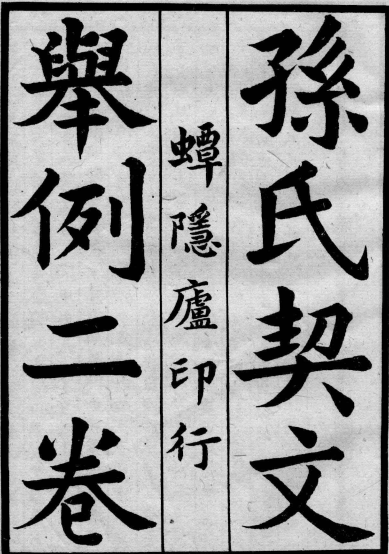 孫氏契文
舉例二卷
蟫隱廬印行